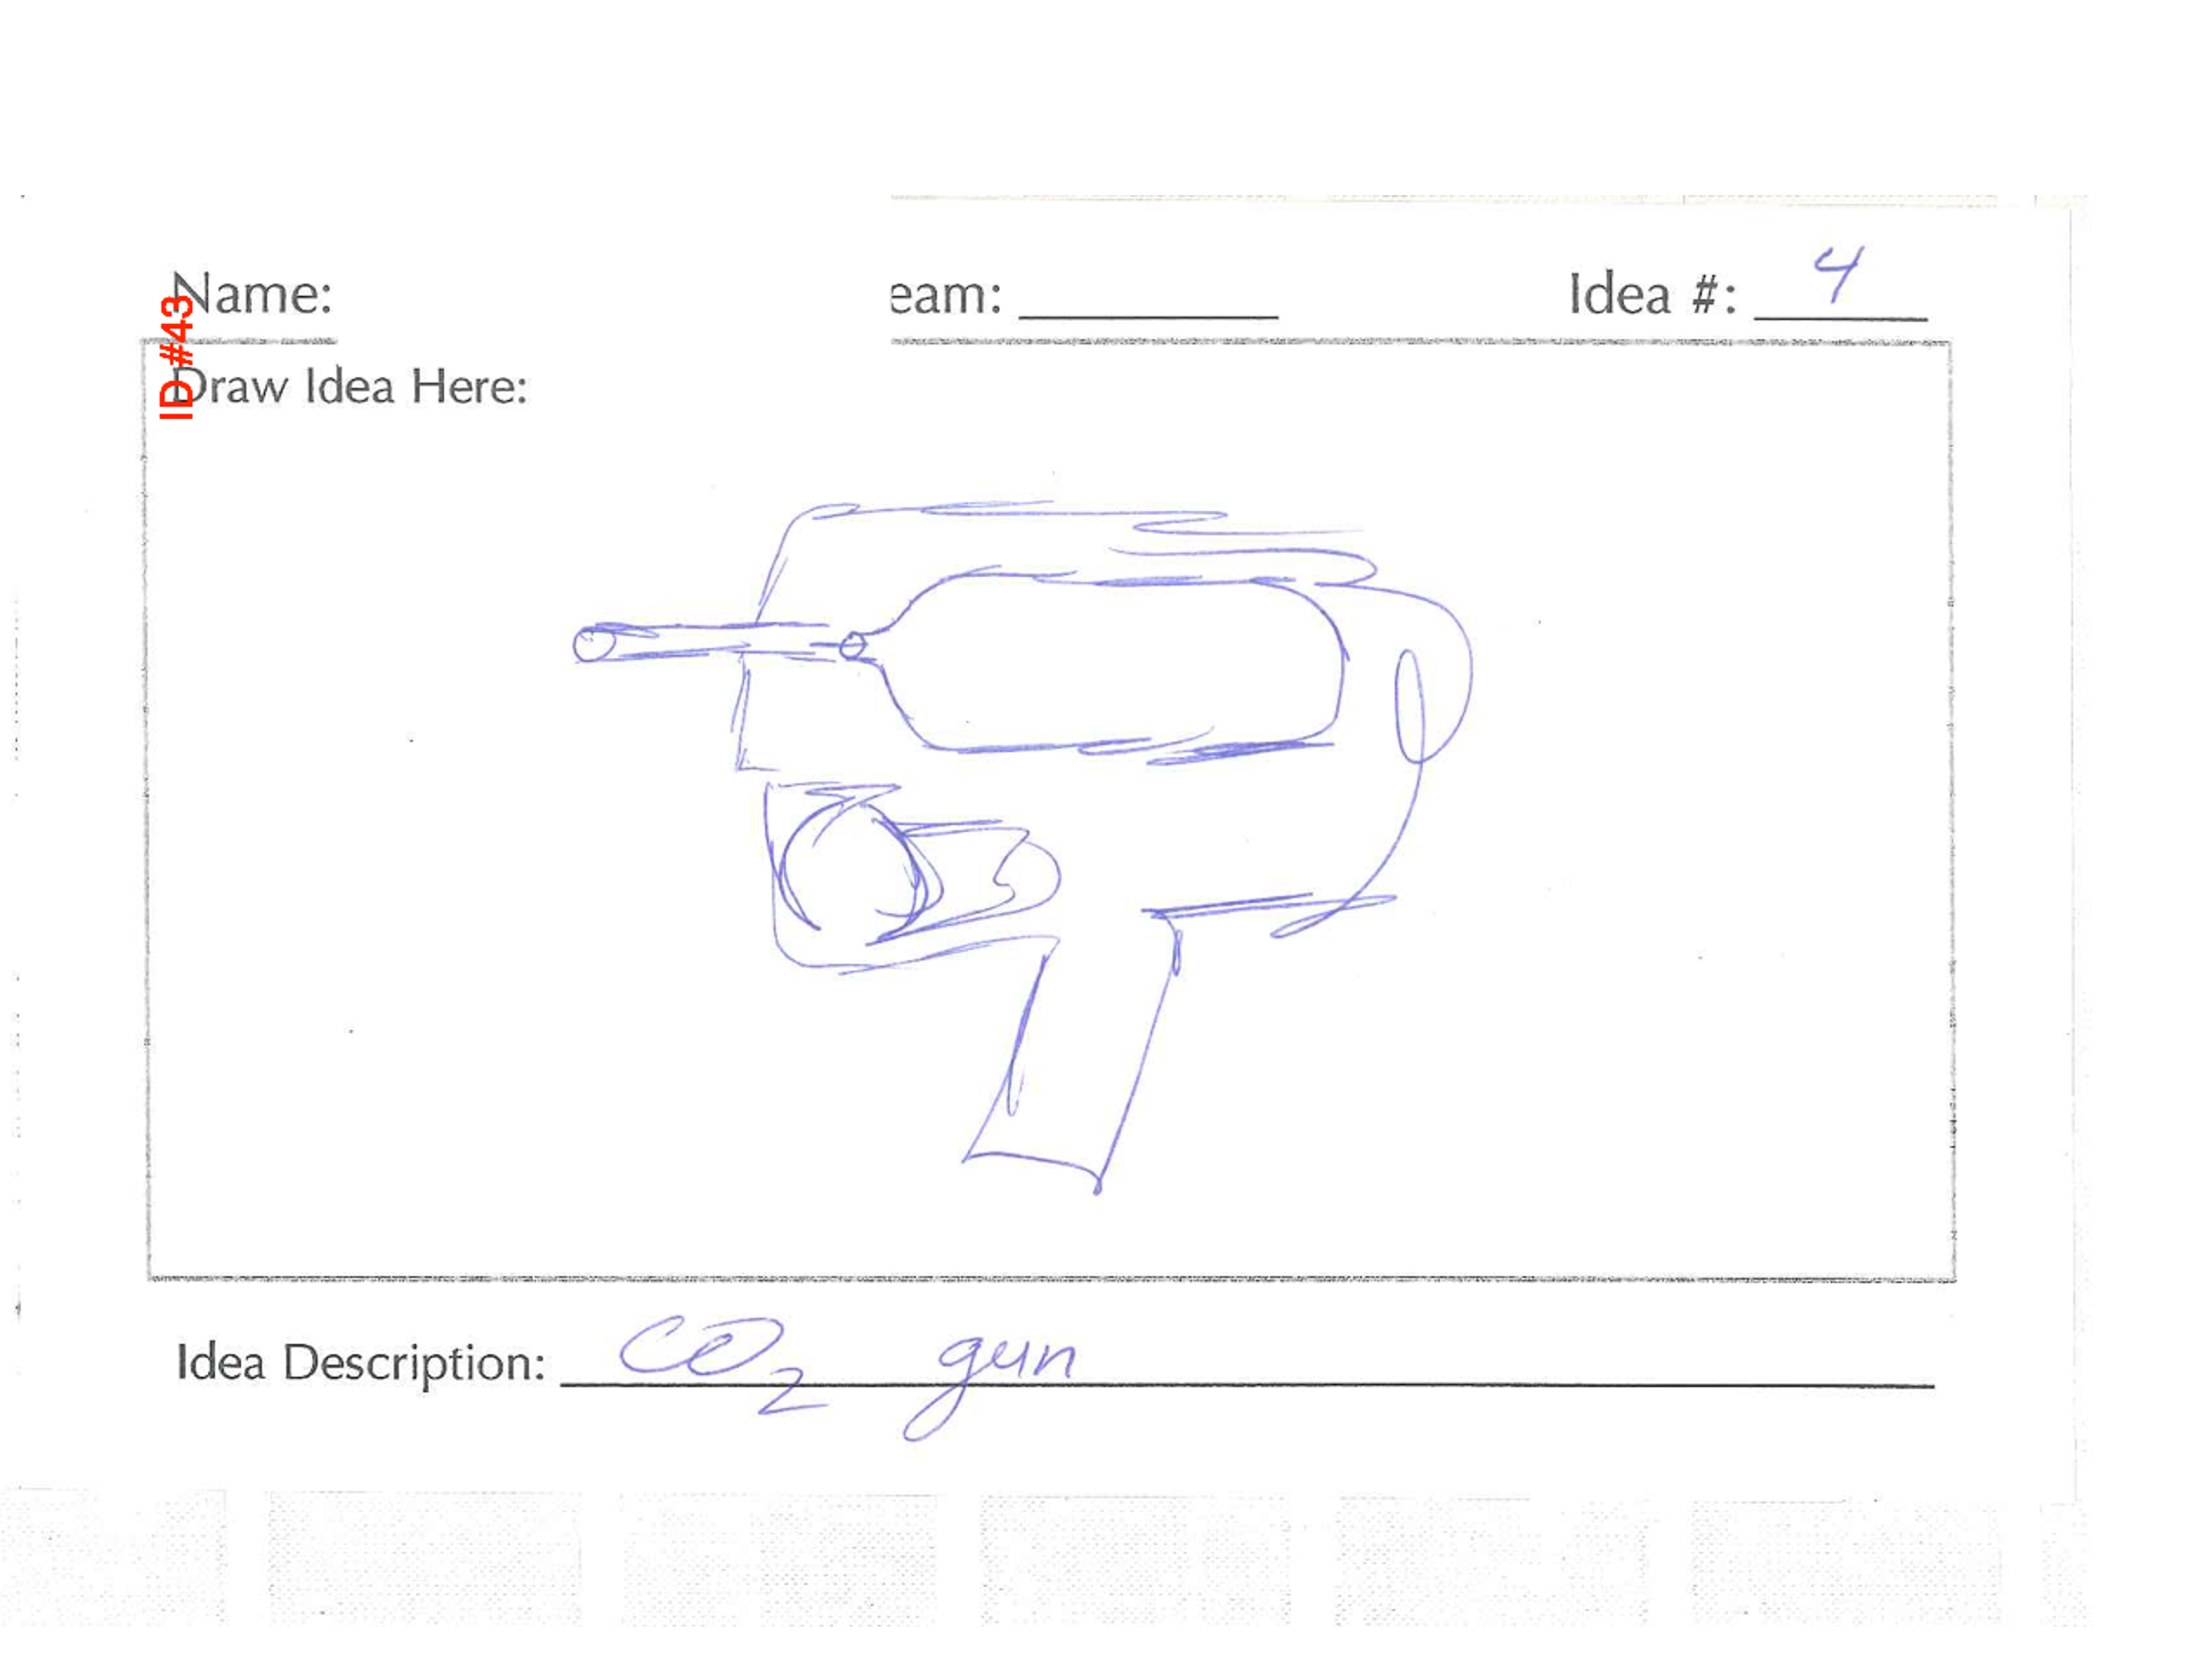 Name: eam: Idea #: 4
ID#43
Draw Idea Here:
Idea Description: CO2 gun